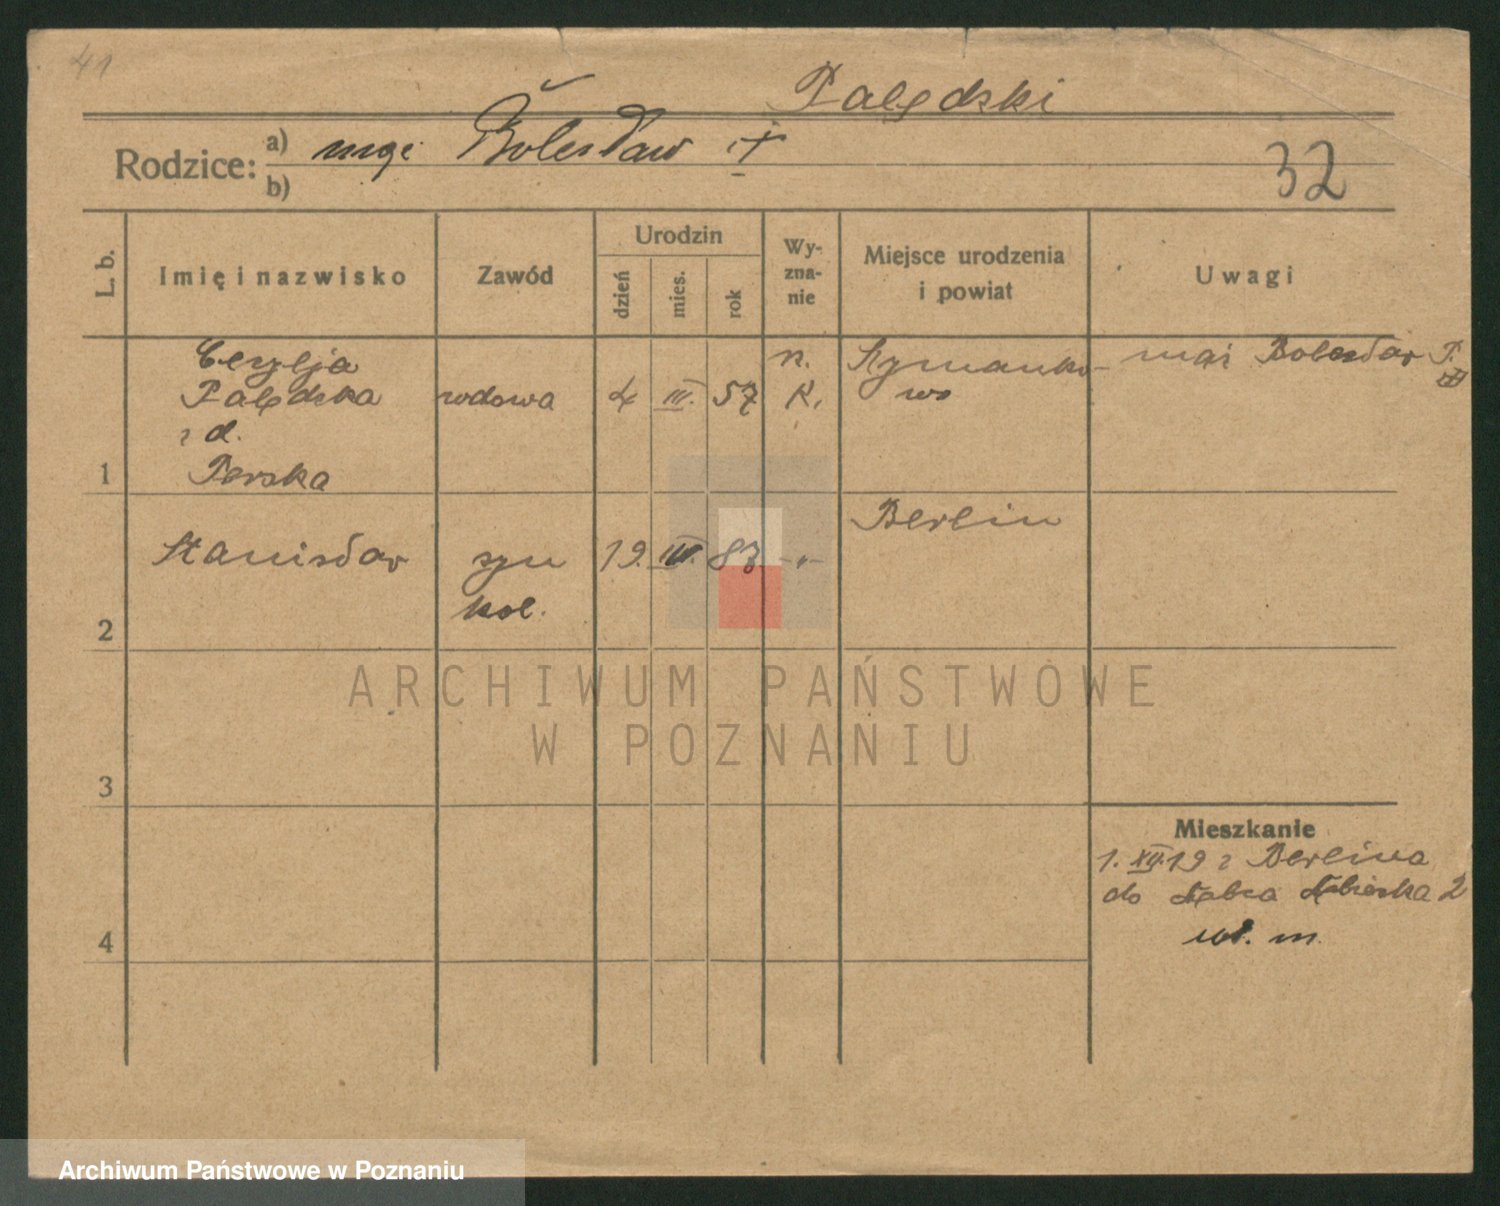 41
Palędzki
Rodzice: a) mąż Bolesław †
b)
32
L. b.
Imię i nazwisko
Zawód
Urodzin
dzień
mies.
rok
Wy-
zna-
nie
Miejsce urodzenia
i powiat
Uwagi
1
Cecylja
Palędzka
z d.
Perska
wdowa
4 III. 57
r.
K.
Szymanko-
wo
mąż Bolesław P.
2
Stanisław
syn
kol.
19. 83 -"-
Berlin
3
4
Mieszkanie
1. XII. 19 z Berlina
do 2
m.
ARCHIWUM PAŃSTWOWE
W POZNANIU
Archiwum Państwowe w Poznaniu